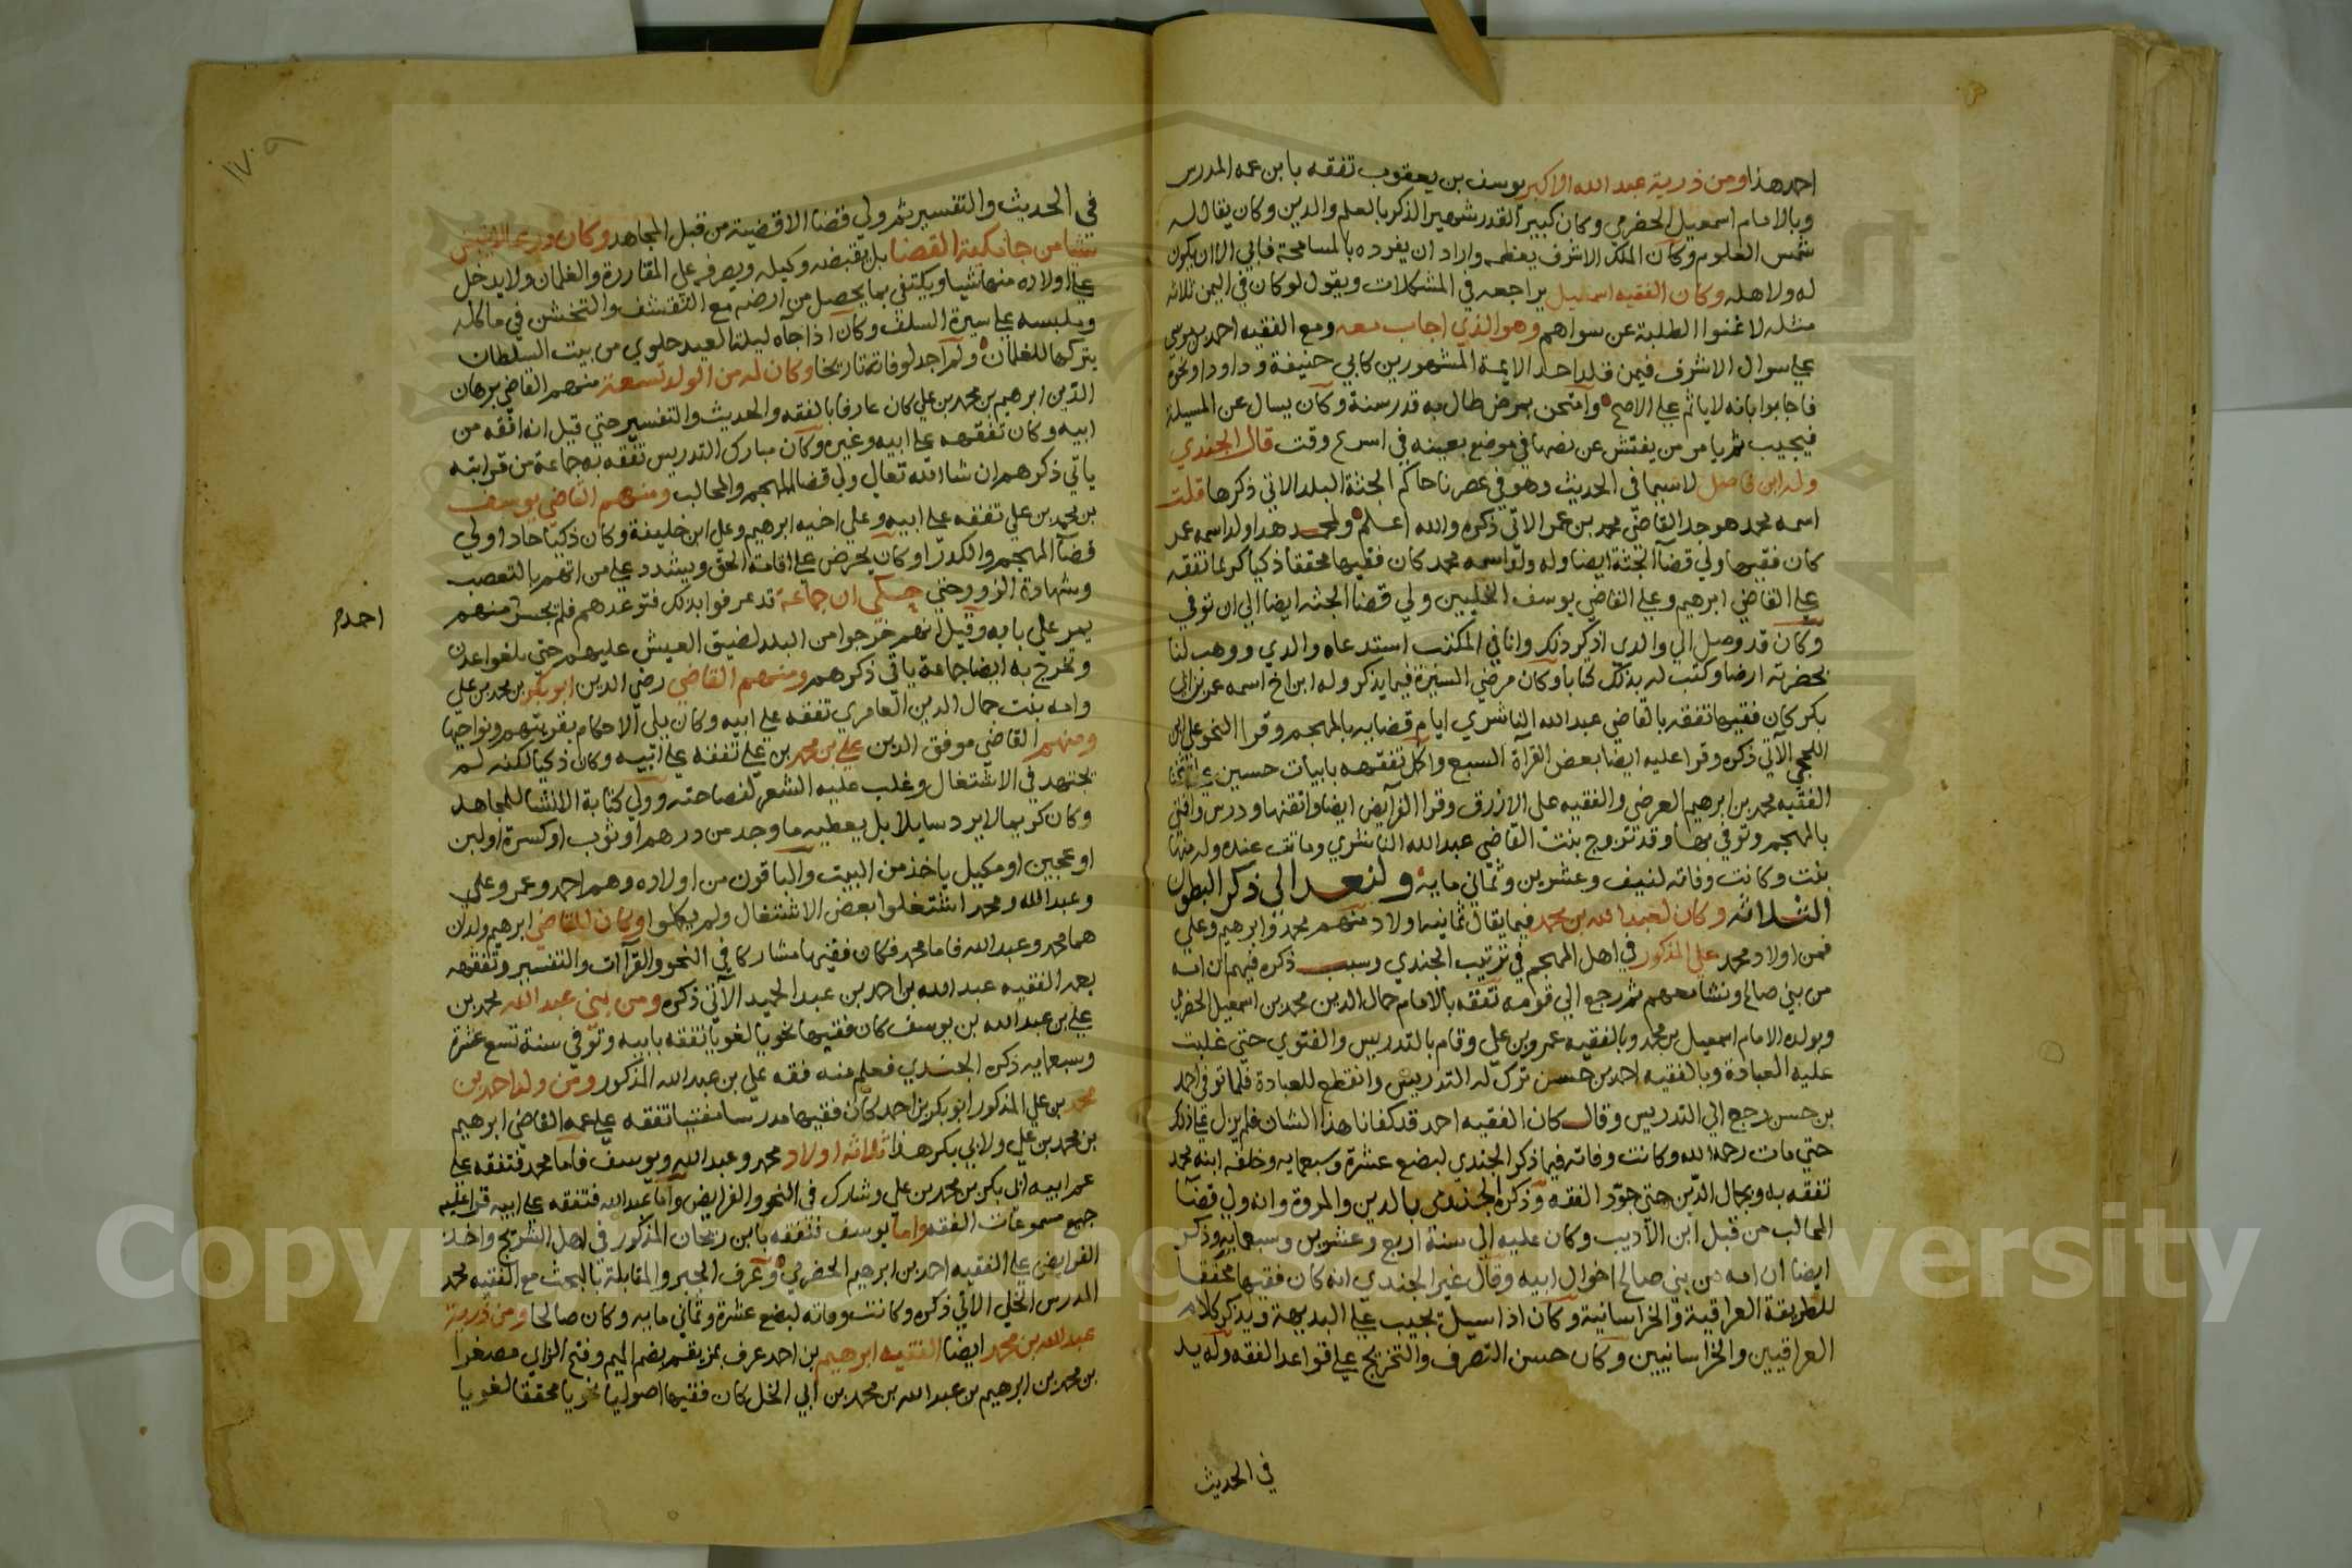 احمد هذا ومن ذرية عبد الله الاكبر يوسف بن يعقوب تفقه بابن عمه المدرس
وبالامام اسمعيل الحضرمي وكان كبير القدر شهير الذكر بالعلم والدين وكان يقال له
شمس العلوم وكان الملك الاشرف يعظمه واراد ان يفرده بالمسامحة فابي الا ان يكون
له ولاهله وكان الفقيه اسمعيل يراجعه في المشكلات ويقول لو كان في اليمن ثلاثه
مثله لاغنوا الطلبة عن سواهم وهو الذي اجاب معه ومع الفقيه احمد بن موسى
علي سوال الاشرف فيمن قلد احد الايمة المشهورين كابي حنيفة وداود او نحوه
فاجابوا بانه لا ياثم علي الاصح وامتحن بمرض طال به قدر سنة وكان يسال عن المسيلة
فيجيب ثم يامر من يفتش عن نصها في موضع بعينه في اسرع وقت قال الجندي
وله ابن فاضل لا سيما في الحديث وهو في عصرنا حاكم الجثة البلد الاتي ذكرها قلت
اسمه محمد هو جد القاضي محمد بن عمر الاتي ذكره والله اعلم ولمحمد هذا ولد اسمه عمر
كان فقيها ولي قضآ الجثة ايضا وله ولد اسمه محمد كان فقيها محققا ذكيا كريما تفقه
علي القاضي ابرهيم وعلي القاضي يوسف الخليين ولي قضا الجثه ايضا الي ان توفي
وكان قد وصل الي والدي اذكر ذلك وانا في المكتب استدعاه والدي ووهب لنا
بحضرته ارضا وكتب له بذلك كتابا وكان مرضي السيرة فيما يذكر وله ابن اخ اسمه عمر بن ابي
بكر كان فقيها تفقه بالقاضي عبد الله الناشري ايام قضايه بالمهجم وقرا النحو علي ابن
الآتي ذكره وقرا عليه ايضا بعض القرآة السبع واكمل تفقهه بابيات حسين
الفقيه محمد بن ابرهيم العرضي والفقيه علي الازرق وقرا الفرآيض ايضا واتقنها ودرس وافتي
بالمهجم وتوفي بها وقد تزوج بنت القاضي عبد الله الناشري وماتت عنده وله منها
بنت وكانت وفاته لنيف وعشرين وثماني مايه ولنعد الي ذكر البطون
الثلاثه وكان لعبد الله بن محمد فيما يقال ثمانيه اولاد منهم محمد وابرهيم وعلي
فمن اولاد محمد علي المذكور في اهل المهجم في ترتيب الجندي وسبب ذكره فيهم ان امه
من بني صالح ونشا معهم ثم رجع الي قومه تفقه بالامام جمال الدين محمد بن اسمعيل الحضرمي
وبولده الامام اسمعيل بن محمد وبالفقيه عمرو بن علي وقام بالتدريس والفتوي حتي غلبت
عليه العبادة وبالفقيه احمد بن حسن ترك له التدريس وانقطع للعبادة فلما توفي احمد
بن حسن رجع الي التدريس وقال كان الفقيه احمد قد كفانا هذا الشان فلم يزل علي ذلك
حتي مات رحمه الله وكانت وفاته فيما ذكر الجندي لبضع عشرة وسبعمايه وخلفه ابنه محمد
تفقه به وبجمال الدين حتي جوّد الفقه وذكره الجندي بالدين والمروة وانه ولي قضآ
المحالب من قبل ابن الاديب وكان عليه الي سنة اربع وعشرين وسبعمايه وذكر
ايضا ان امه من بني صالح اخوال ابيه وقال غير الجندي انه كان فقيها محققا
للطريقة العراقية والخراسانية وكان اذا سيل يجيب علي البديهة ويذكر كلام
العراقيين والخراسانيين وكان حسن التصرف والتخريج علي قواعد الفقه وله يد
في الحديث
في الحديث والتفسير ثم ولي قضا الاقضية من قبل المجاهد وكان ورعا لا
شيا من جامكية القضا بل يقبضه وكيله ويصرفه علي المقاررة والغلمان ولا يدخل
علي اولاده منها شيا ويكتفي بما يحصل من ارضه مع التقشف والتخشن في ماكله
وملبسه علي سيرة السلف وكان اذا جآه ليلة العيد حلوي من بيت السلطان
يتركها للغلمان ولم اجد لوفاته تاريخا وكان له من الولد تسعة منهم القاضي برهان
الدين ابرهيم بن محمد بن علي كان عارفا بالفقه والحديث والتفسير حتي قيل انه افقه من
ابيه وكان تفقهه علي ابيه وغيره وكان مبارك التدريس تفقه به جماعة من قرابته
ياتي ذكرهم ان شا الله تعالي ولي قضا المهجم والمحالب ومنهم القاضي يوسف
بن محمد بن علي تفقه علي ابيه وعلي اخيه ابرهيم وعلي ابن خليفة وكان ذكيا حادا ولي
قضآ المهجم والكدرا وكان يحرض علي اقامة الحق ويشدد علي من اتهم بالتعصب
وشهادة الزور حتي حكي ان جماعة قد عرفوا بذلك فتوعدهم فلم يجسر منهم
احد
يمر علي بابه وقيل انهم خرجوا من البلد لضيق العيش عليهم حتي بلغوا عدن
وتخرج به ايضا جماعة ياتي ذكرهم ومنهم القاضي رضي الدين ابو بكر بن محمد بن علي
وامه بنت جمال الدين العامري تفقه علي ابيه وكان يلي الاحكام بقريتهم ونواحيها
ومنهم القاضي موفق الدين علي بن محمد بن علي تفقه علي ابيه وكان ذكيا لكنه لم
يجتهد في الاشتغال وغلب عليه الشعر لفصاحته وولي كتابة الانشا للمجاهد
وكان كريما لا يرد سايلا بل يعطيه ما وجد من درهم او ثوب او كسرة او لبن
او عجين او مكيل ياخذ من البيت والباقون من اولاده وهم احمد وعمر وعلي
وعبد الله ومحمد اشتغلوا بعض الاشتغال ولم يكملوا وكان للقاضي ابرهيم ولدان
هما محمد وعبد الله فاما محمد فكان فقيها مشاركا في النحو والقرآات والتفسير وتفقهه
بعمه الفقيه عبد الله بن احمد بن عبد الحميد الآتي ذكره ومن بني عبد الله محمد بن
علي بن عبد الله بن يوسف كان فقيها نحويا لغويا تفقه بابيه وتوفي سنة تسع عشرة
وسبعمايه ذكره الجندي فعلم منه فقه علي بن عبد الله المذكور ومن ولد احمد بن
محمد بن علي المذكور ابو بكر بن احمد كان فقيها مدرسا مفتيا تفقه علي عمه القاضي ابرهيم
بن محمد بن علي ولابي بكر هذا ثلاثه اولاد محمد وعبد الله ويوسف فاما محمد فتفقه علي
عم ابيه ابي بكر بن محمد بن علي وشارك في النحو والفرايض واما عبد الله فتفقه علي ابيه قرا عليه
جميع مسموعات الفقه واما يوسف فتفقه بابن ريحان المذكور في اهل الشويج واخذ
الفرايض علي الفقيه احمد بن ابرهيم الحضرمي وعرف الجبر والمقابلة بالبحث مع الفقيه محمد
المدرس الخلي الاتي ذكره وكانت وفاته لبضع عشرة وثماني مايه وكان صالحا ومن ذرية
عبد الله بن محمد ايضا الفقيه ابرهيم بن احمد عرف بمزيقم بضم الميم وفتح الزاي مصغرا
بن محمد بن ابرهيم بن عبد الله بن محمد بن ابي الخل كان فقيها اصوليا نحويا محققا لغويا